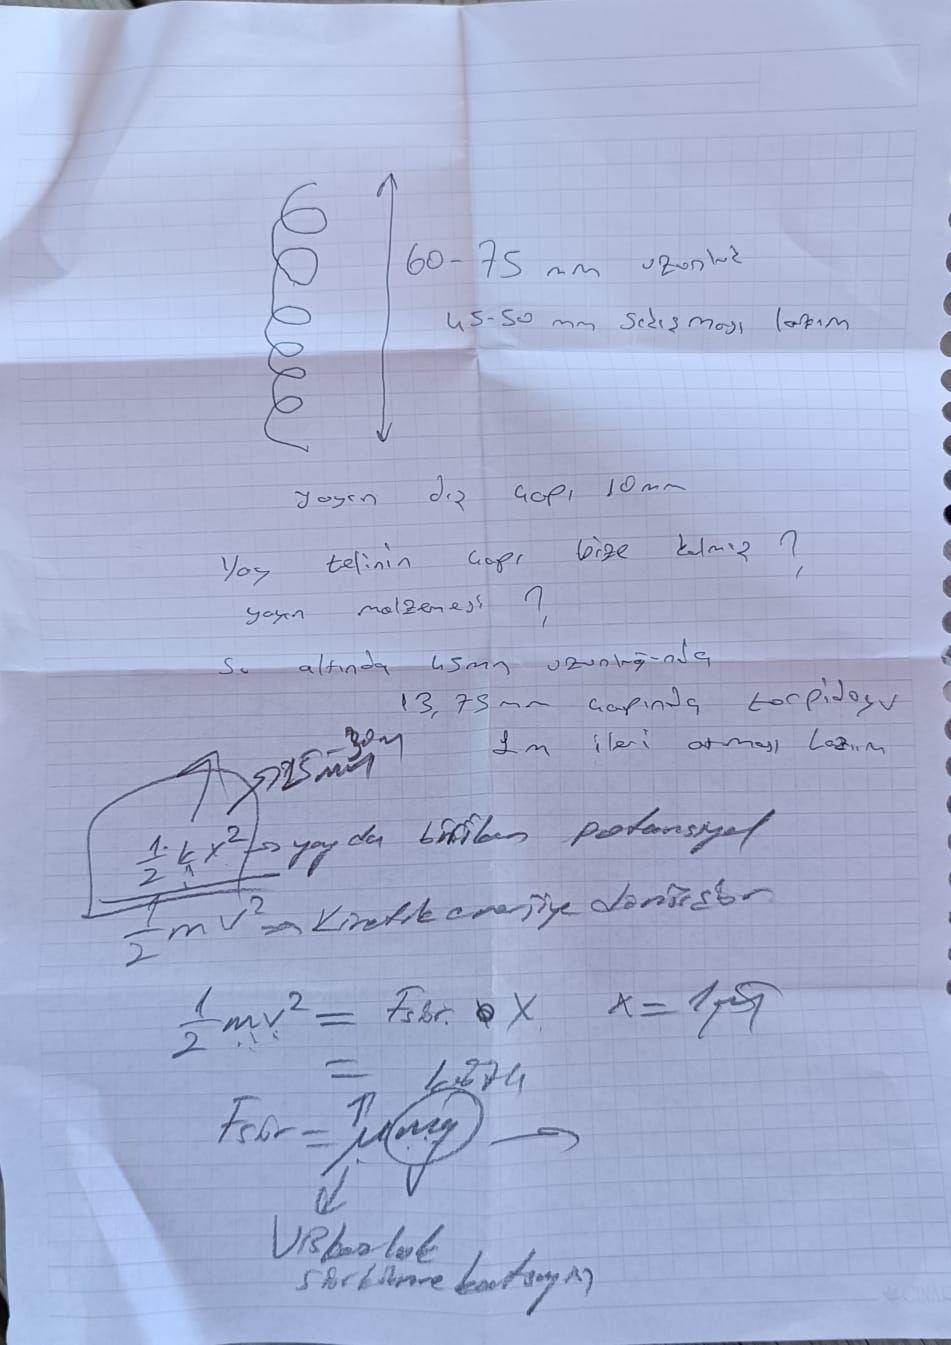 60-75 mm uzunluk
45-50 mm sıkışması lazım
yayın dış çapı 10mm
Yay telinin çapı bize kalmış ?
yayın malzemesi ?
Su altında 45mm uzunluğunda
13,75mm çapında torpidoyu
1m ileri atması lazım
1/2 k x² → yayda biriken potansiyel
1/2 m v² → Kinetik enerjiye dönüşür
1/2 m v² = Fsür. • X x = 1m
=
Fsür = μ mg →
Viskozluk
sürtünme katsayısı